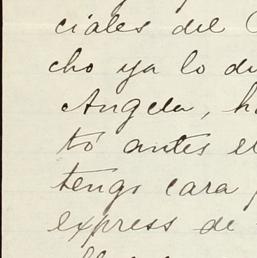 ciales del
cho ya lo
Angela,
tó antes
tengo cara
express de